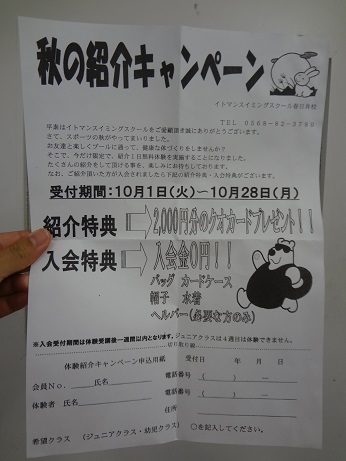 秋の紹介キャンペーン
イトマンスイミングスクール春日井校
TEL 0568-82-3766
平素はイトマンスイミングスクールをご愛顧頂き誠にありがとうございます。
さて、スポーツの秋がやって参りました。
お友達と楽しくプールに通って、健康な体づくりをしませんか?
そこで、今だけ限定で、紹介1日無料体験を実施することになりました。
たくさんの紹介をして頂ける事を、楽しみにお待ちしております。
なお、ご紹介頂いた方が入会されましたら下記の紹介特典・入会特典がございます。
受付期間:10月1日(火)~10月28日(月)
紹介特典 2,000円分のクオカードプレゼント!!
入会特典 入会金0円!!
バッグ カードケース
帽子 水着
ヘルパー(必要な方のみ)
※入会受付期間は体験受講後一週間以内となります。ジュニアクラスは4週目は体験できません。
切り取り線
体験紹介キャンペーン申込用紙 受付日 年 月 日
会員No、 氏名 電話番号 ( ) ー
体験者 氏名 電話番号 ( ) ー
住所
希望クラス (ジュニアクラス・幼児クラス) ○を記入してください。